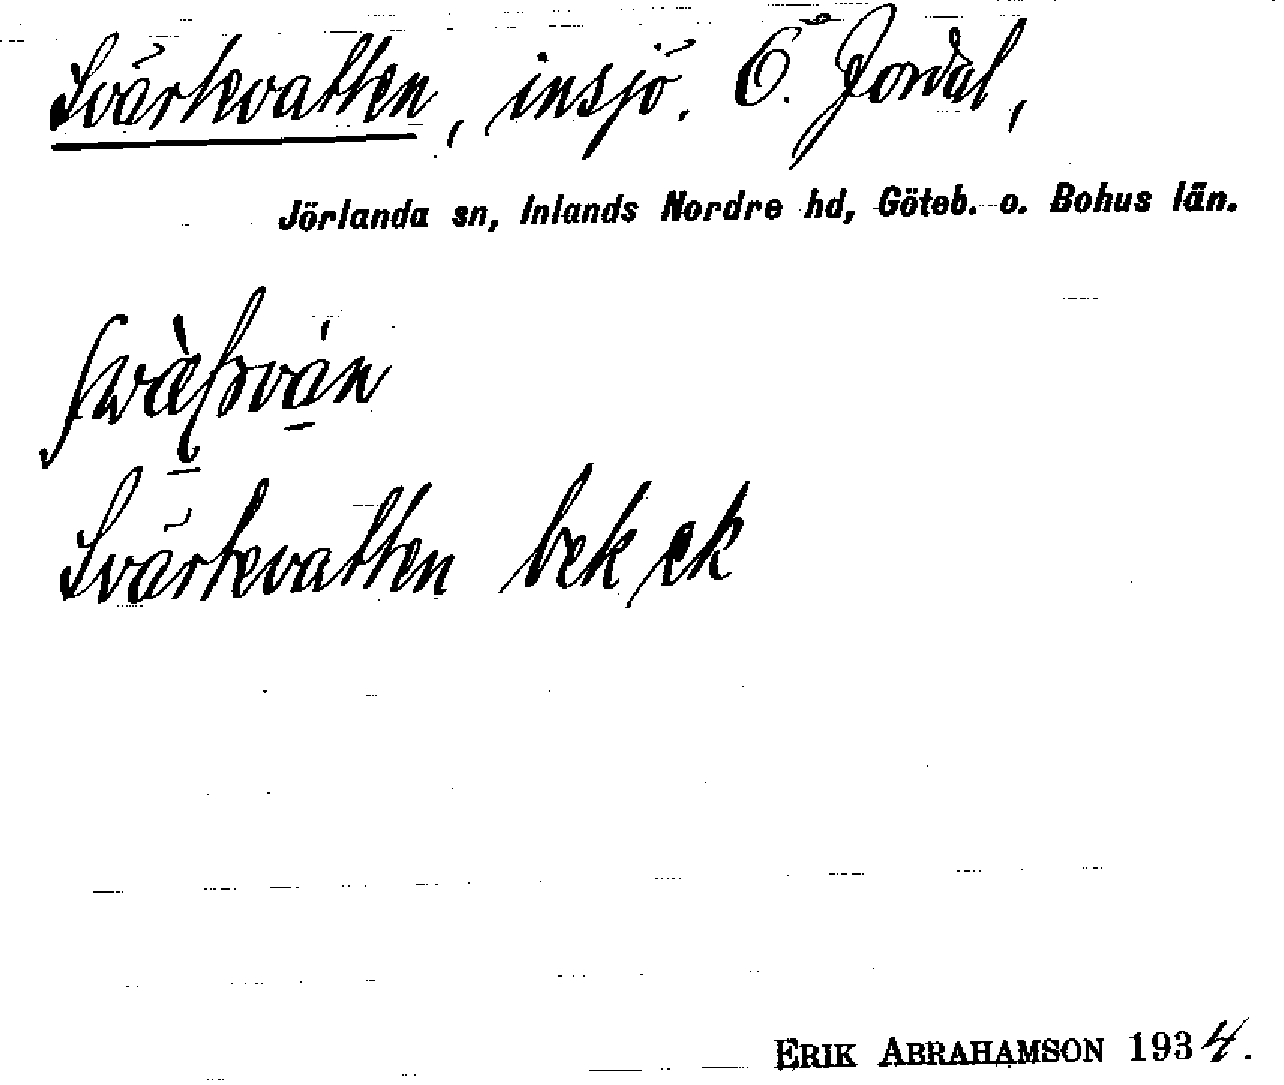 Svartevatten, insjö. Ö. Jordal,
Jörlanda sn, Inlands Nordre hd, Göteb. o. Bohus län.
Svartevatten bek ek
ERIK ABRAHAMSON 1934.